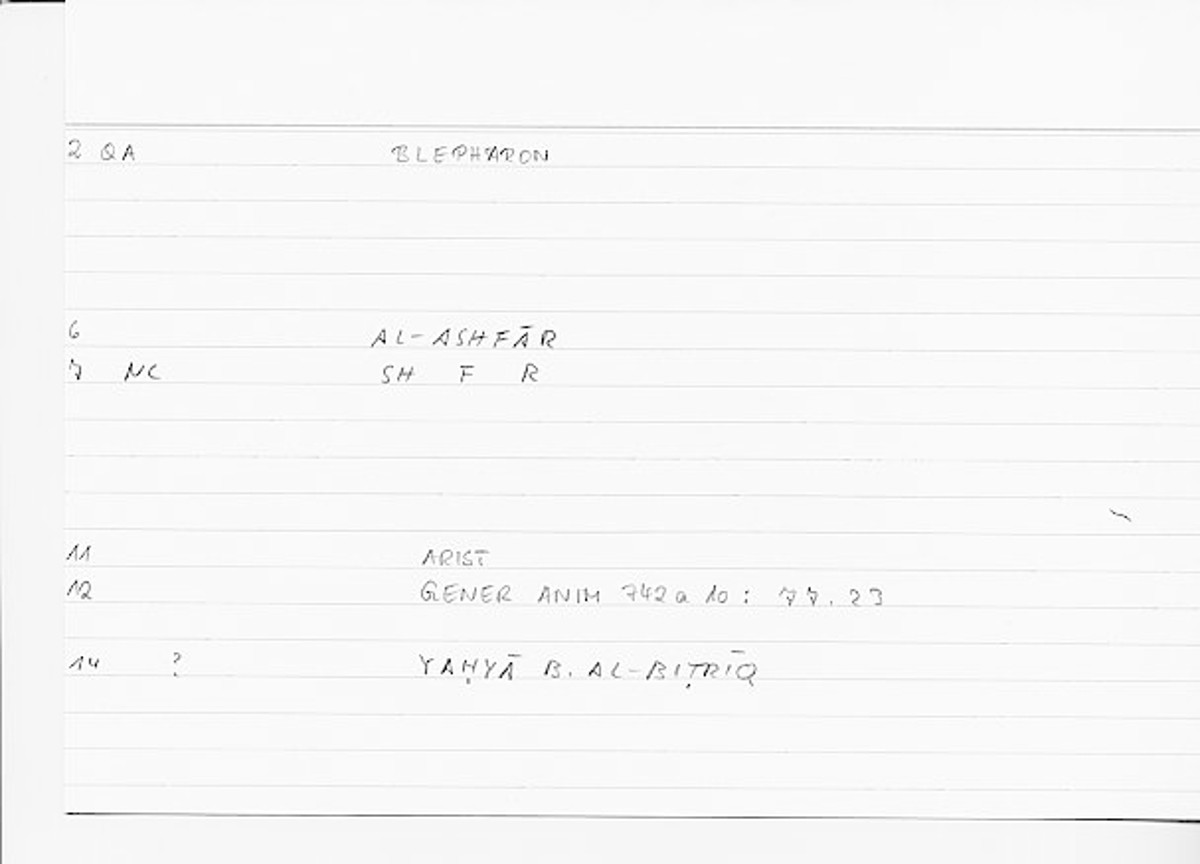 2 QA BLEPHARON
6 AL-ASHFĀR
7 NC SH F R
11 ARIST
12 GENER ANIM 742a 10 : 77.23
14 ? YAḤYĀ B. AL-BIṬRĪQ